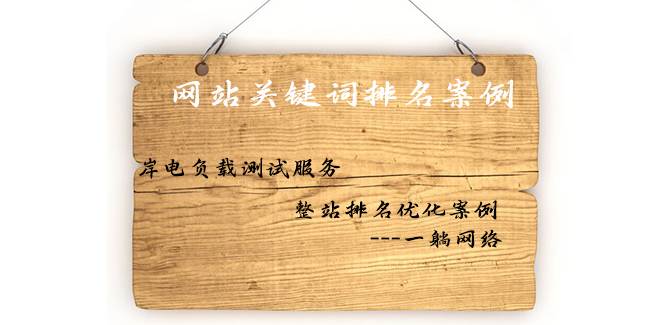 网站关键词排名案例
岸电负载测试服务
整站排名优化案例
---一躺网络